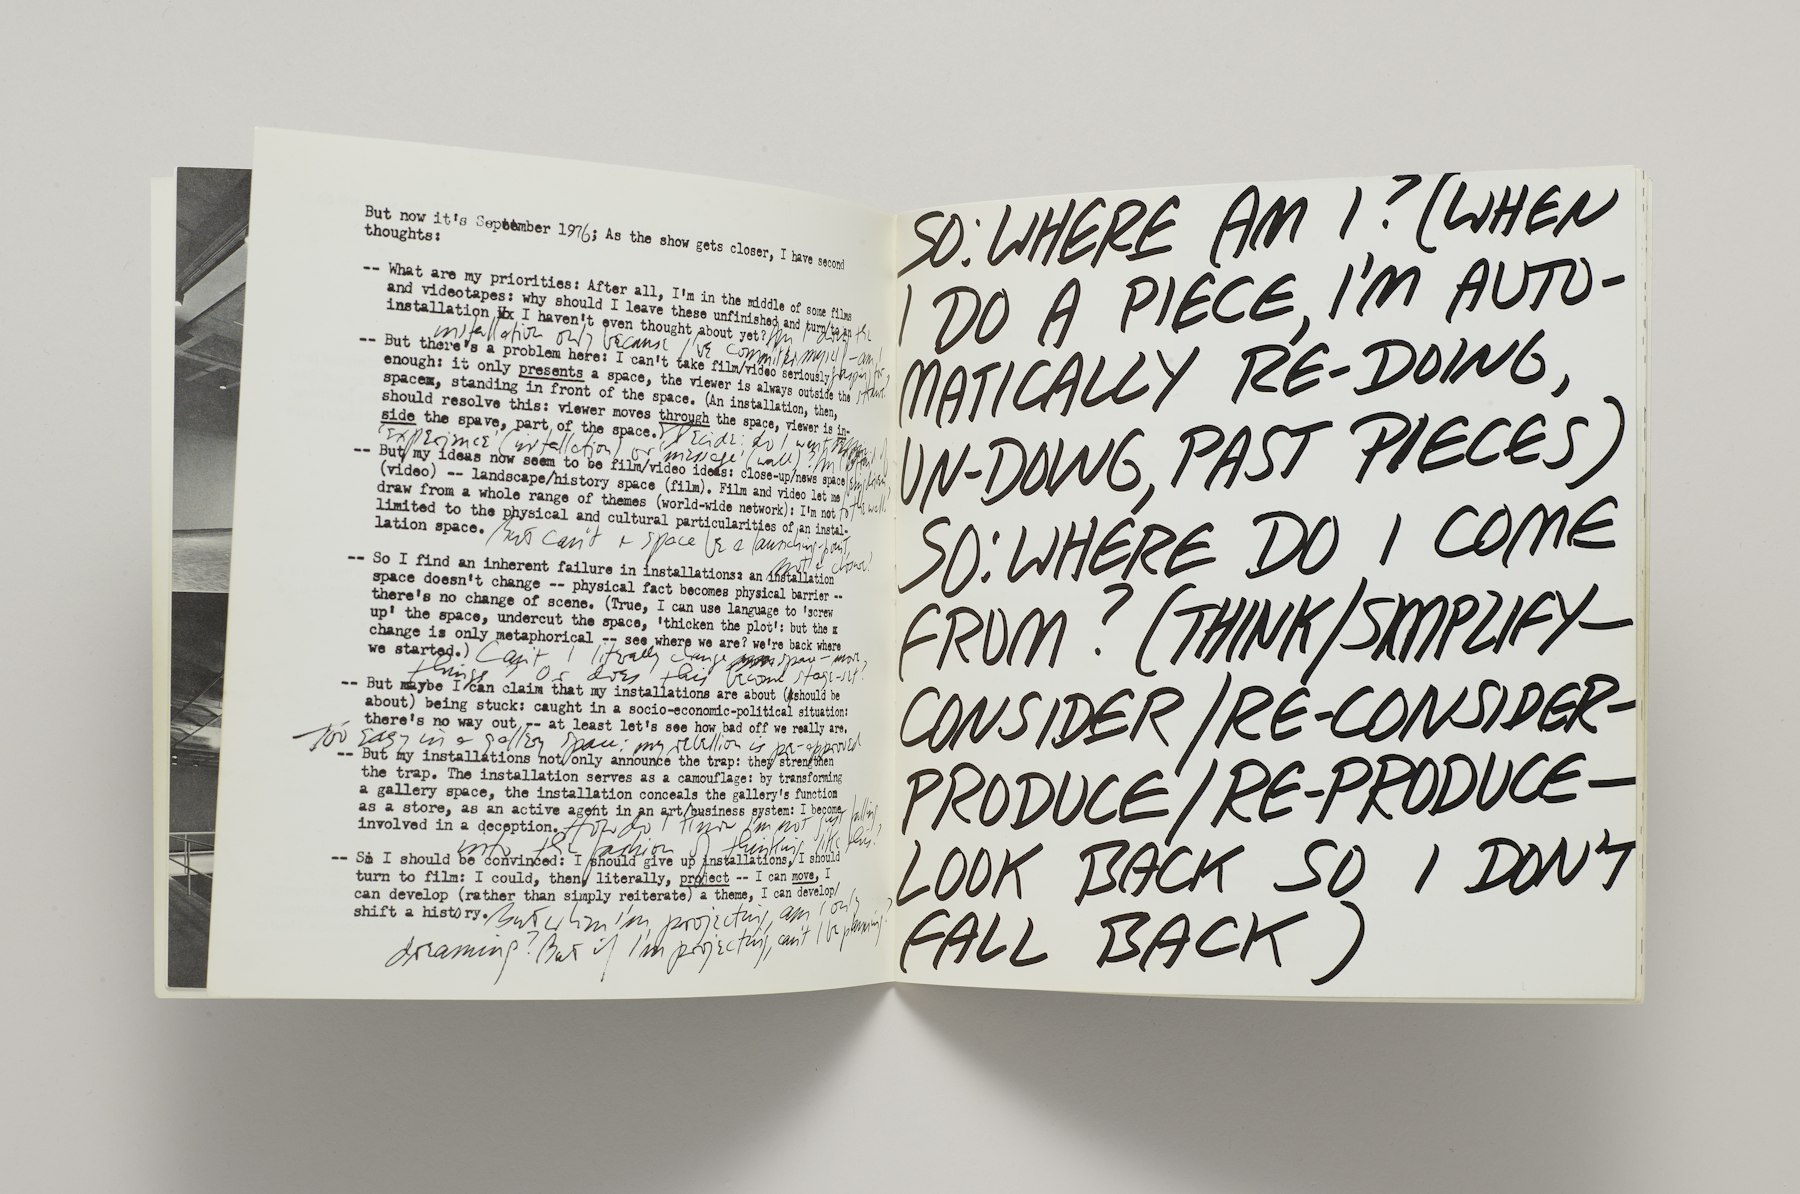 But now it's September 1976; As the show gets closer, I have second
thoughts:
-- What are my priorities: After all, I'm in the middle of some films
and videotapes: why should I leave these unfinished and turn to an
installation I haven't even thought about yet?
installation only because I've committed myself
-- But there's a problem here: I can't take film/video seriously
enough: it only presents a space, the viewer is always outside the
space, standing in front of the space. (An installation, then,
should resolve this: viewer moves through the space, viewer is in-
side the spave, part of the space.) Decide: do I want
'experience' (installation) or 'message' (wall)?
-- But my ideas now seem to be film/video ideas: close-up/news space
(video) -- landscape/history space (film). Film and video let me
draw from a whole range of themes (world-wide network): I'm not
limited to the physical and cultural particularities of an instal-
lation space. But can't a space be a launching-point,
-- So I find an inherent failure in installations: an installation
space doesn't change -- physical fact becomes physical barrier --
there's no change of scene. (True, I can use language to 'screw
up' the space, undercut the space, 'thicken the plot': but the x
change is only metaphorical -- see where we are? we're back where
we started.) Can't I literally change space - move
things? Or does this become stage-set?
-- But maybe I can claim that my installations are about (should be
about) being stuck: caught in a socio-economic-political situation:
there's no way out -- at least let's see how bad off we really are.
Too easy in a gallery space: my rebellion is pre-approved
-- But my installations not only announce the trap: they strengthen
the trap. The installation serves as a camouflage: by transforming
a gallery space, the installation conceals the gallery's function
as a store, as an active agent in an art/business system: I become
involved in a deception. How do I know I'm not just falling
into the fashion of thinking like this?
-- So I should be convinced: I should give up installations, I should
turn to film: I could, then, literally, project -- I can move, I
can develop (rather than simply reiterate) a theme, I can develop/
shift a history. But when I'm projecting, am I only
dreaming? But if I'm projecting, can't I be planning?
SO: WHERE AM I? (WHEN
I DO A PIECE, I'M AUTO-
MATICALLY RE-DOING,
UN-DOING, PAST PIECES)
SO: WHERE DO I COME
FROM? (THINK/SIMPLIFY—
CONSIDER/RE-CONSIDER—
PRODUCE/RE-PRODUCE—
LOOK BACK SO I DON'T
FALL BACK)